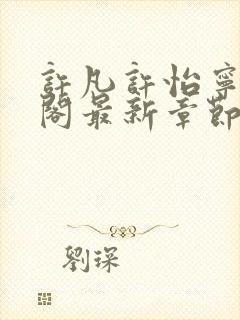 許凡許怡寧
閣最新章節
劉琛